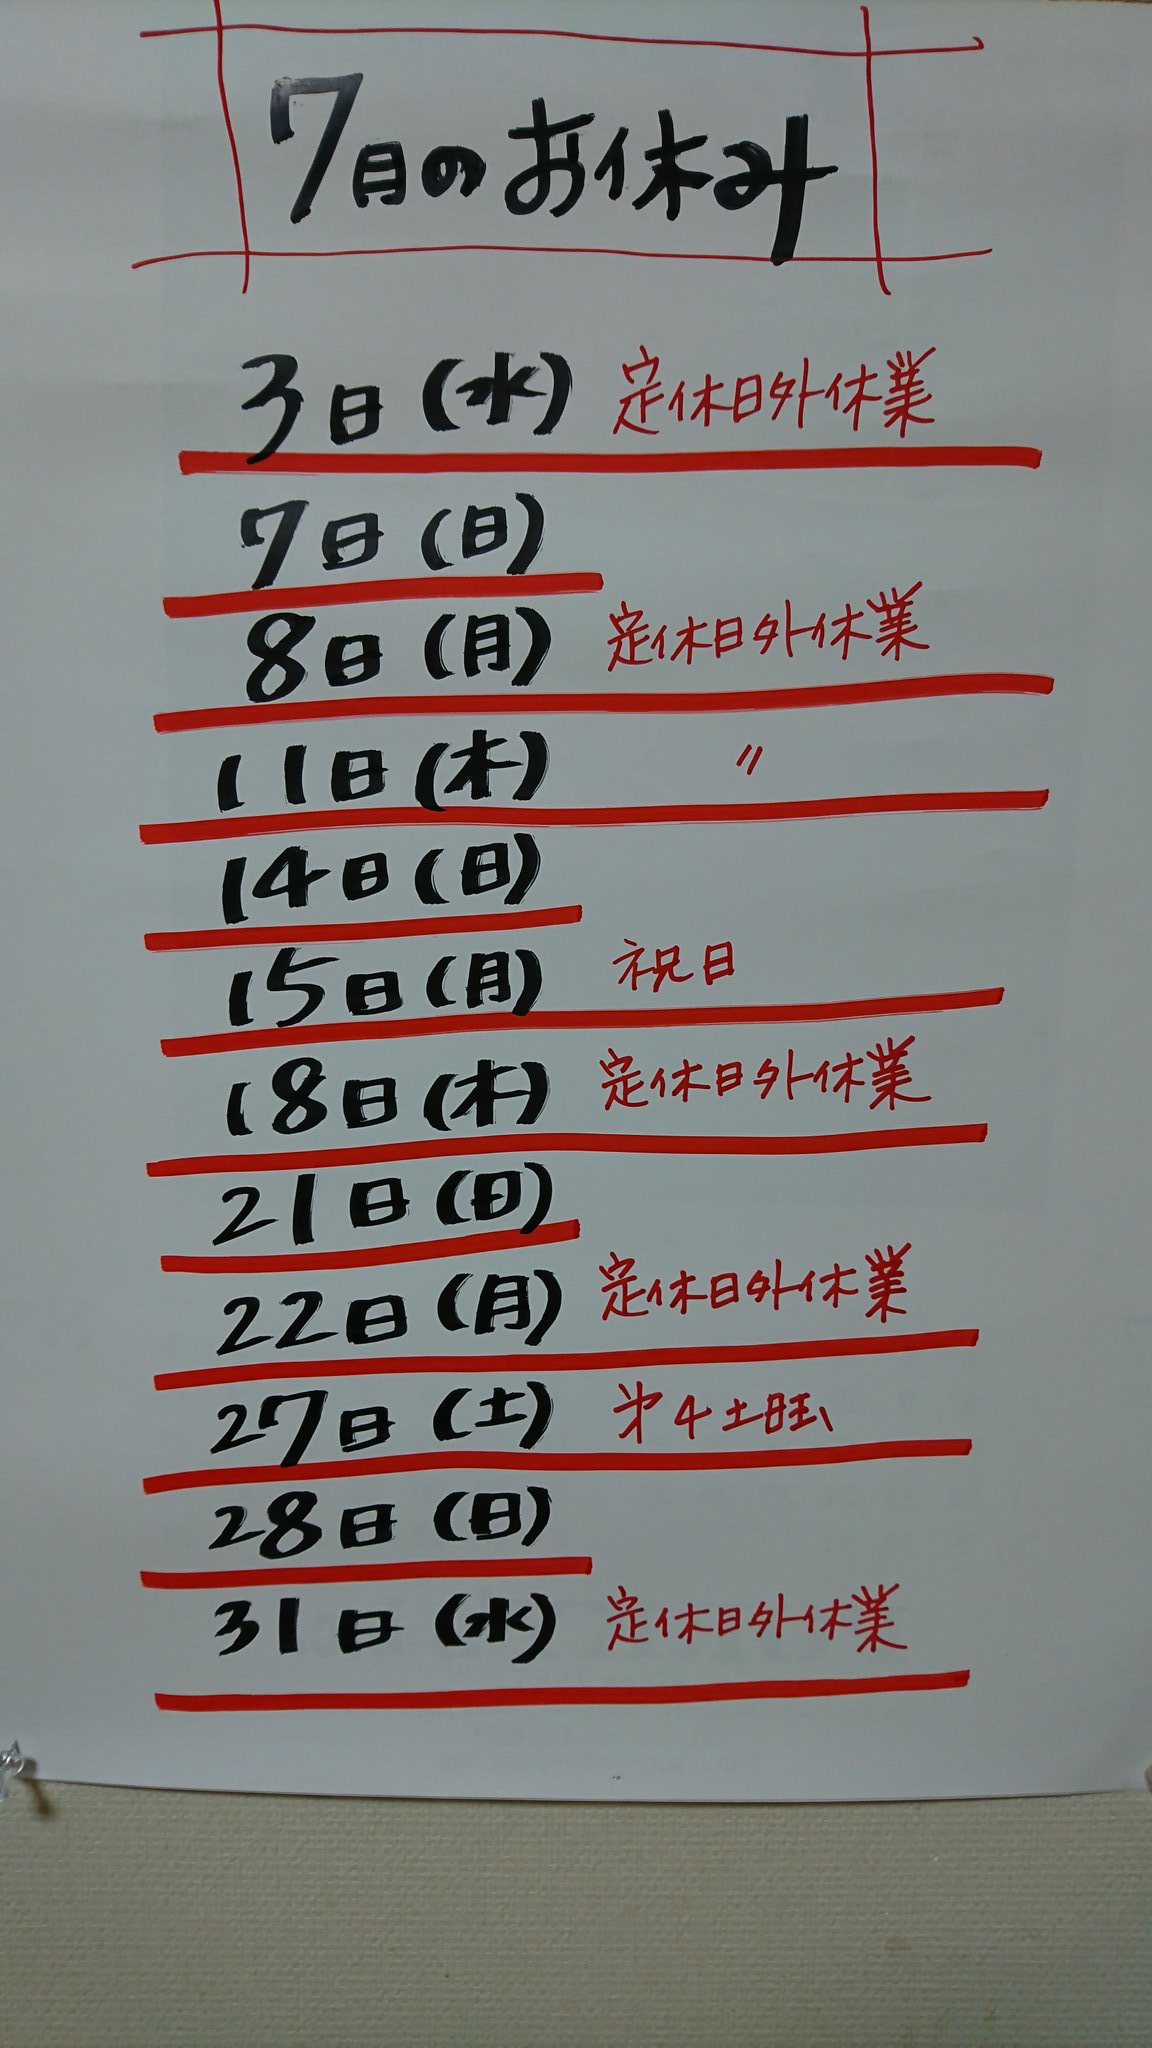 7月のお休み
3日(水) 定休日外休業
7日(日)
8日(月) 定休日外休業
11日(木) 〃
14日(日)
15日(月) 祝日
18日(木) 定休日外休業
21日(日)
22日(月) 定休日外休業
27日(土) 第4土旺、
28日(日)
31日(水) 定休日外休業